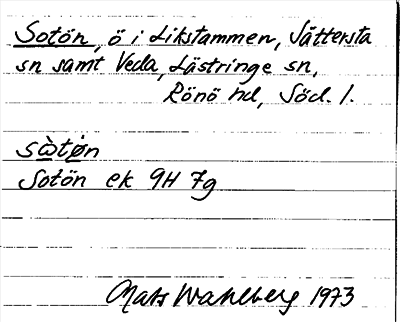 Sotön, ö i Likstammen, Sättersta
sn samt Veda, Lästringe sn,
Rönö hd, Söd. l.
sὼtø̀n
Sotön ek 9H 7g
Mats Wahlberg 1973